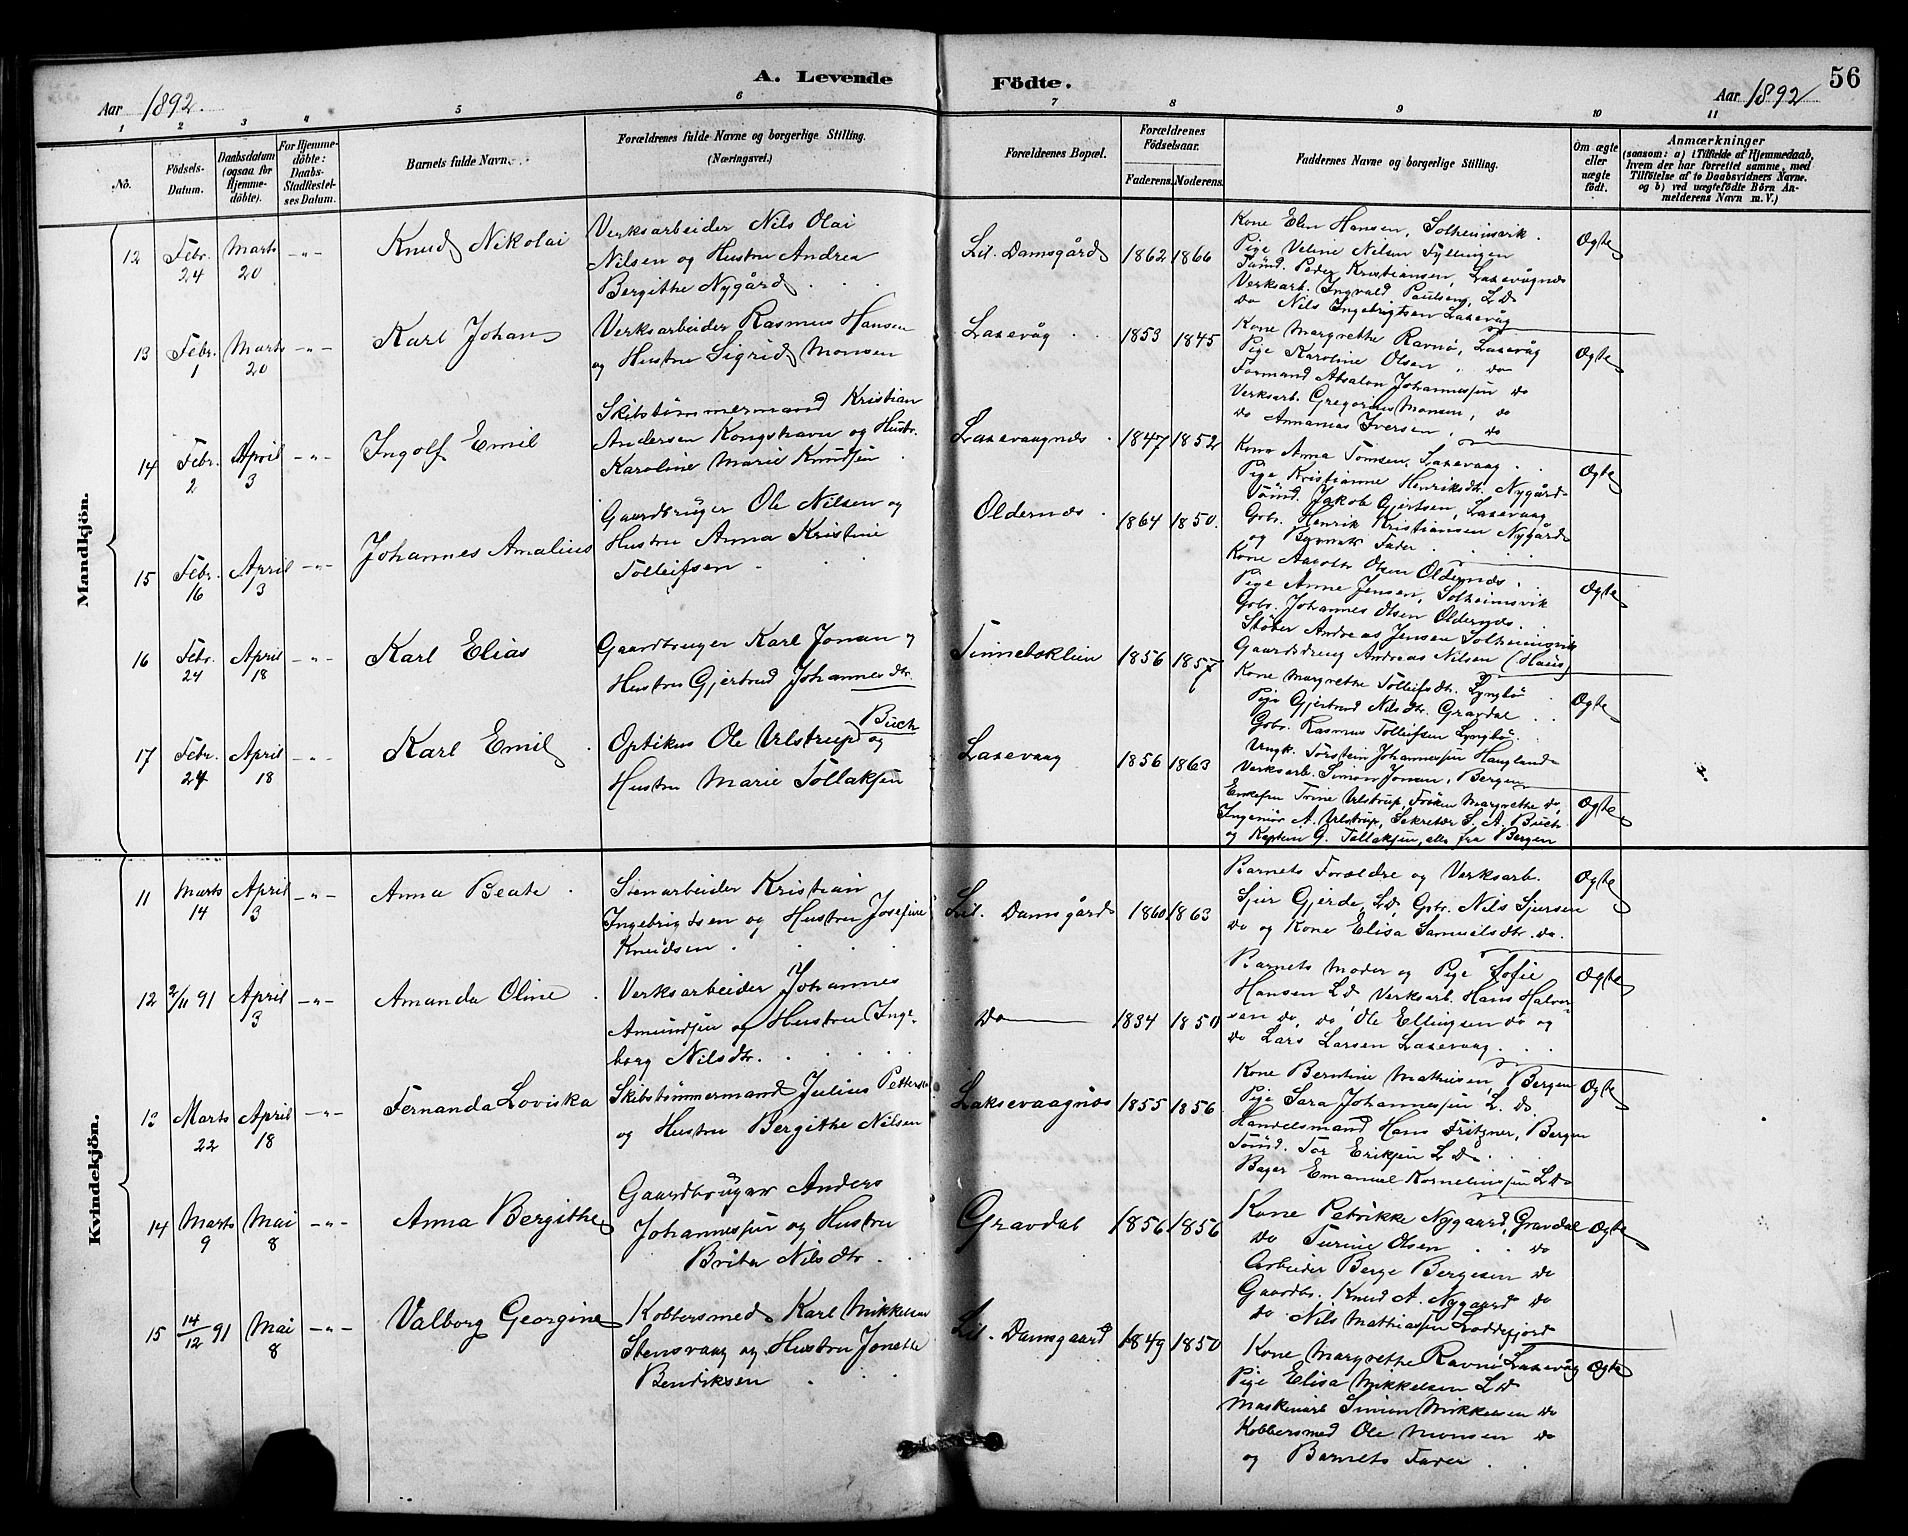 A. Levende Födte.
56
Aar 1892.
Aar 1892
1 2 3 4 5 6 7 8 9 10 11
No.
Födsels-Datum.
Daabsdatum (ogsaa for Hjemme-döbte).
For Hjemme-döbte: Daabs-Stadfæstel-ses Datum.
Barnets fulde Navn.
Forældrenes fulde Navne og borgerlige Stilling. (Næringsvei.)
Forældrenes Bopæl.
Forældrenes Födselsaar.
Faderens. Moderens.
Faddernes Navne og borgerlige Stilling.
Om ægte eller uægte födt.
Anmærkninger
(saasom: a) i Tilfælde af Hjemmedaab, hvem der har forrettet samme, med Tilföielse af to Daabsvidners Navne. og b) ved uægtefödte Börn An-melderens Navn m. V.)
Mandkjön.
12 Febr. 24 Marts 20 -"- Knud Nikolai
Verksarbeider Nils Olai
Nilsen og Hustru Andrea
Bergithe Nygård
Lil. Damsgård 1862 1866
Kone Elen Hansen, Solheimsvik.
Pige Veline Nilsen Fyllingen
Tömd. Peder Kristiansen, Laxevågnæs
Verksarb. Ingvald Paulsen, L. D.
do Nils Ingebrigtsen Laxevåg
Ægte
13 Febr. 1 Marts 20 -"- Karl Johan
Verksarbeider Rasmus Hansen
og Hustru Sigrid Monsen
Laxevåg 1853 1845
Kone Margrethe Ravnø, Laxevåg
Pige Karoline Olsen do
Formand Absalon Johannessen do
Verksarb. Gregorius Monsen, do
do Annanias Iversen, do
Ægte
14 Febr. 2 April 3 -"- Ingolf Emil
Skibstømmermand Kristian
Andersen Kongshavn og Hustr.
Karoline Marie Knudsen
Laxevaagnæs 1847 1852
Kone Anna Tomsen, Laxevaag
Pige Kristianne Henriksdtr. Nygård
Tömd. Jakob Gjertsen, Laxevaag
Gbr. Henrik Kristiansen Nygård
og Barnets Fader
Ægte
15 Febr. 16 April 3 -"- Johannes Amalius
Gaardbruger Ole Nilsen og
Hustru Anna Kristine
Tolleifsen
Oldernæs 1864 1850.
Kone Olsen Oldernæs
Pige Anne Jensen, Solheimsvik
Gbr. Johannes Olsen Oldernæs
Støber Andreas Jensen Solheimsvik
Gaardsdreng Andreas Nilsen (Haus)
Ægte
16 Febr. 24 April 18 -"- Karl Elias
Gaardbruger Karl Jonan og
Hustru Gjertrud Johannesdtr.
1856 1857
Kone Margrethe Tolleifsdtr. Lyngbö
Pige Gjertrud Nilsdtr. Gravdal
Gbr. Rasmus Tolleifsen Lyngbö
Ungk. Torstein Johannessen Haugland
Verksarb. Simon Jonan, Bergen
Ægte
17 Febr. 24 April 18 -"- Karl Emil
Buch
Optikus Ole Ulstrup og
Hustru Marie Tollaksen
Laxevaag 1856 1863
Enkefru Trine Ulstrup, Frøken Margrethe do,
Ingeniør A. Ulstrup, Sekretær S. A. Buch
og Kaptein G. Tollaksen, alle fra Bergen
Ægte
Kvindekjön.
11 Marts 14 April 3 -"- Anna Beate
Stenarbeider Kristian
Ingebrigtsen og Hustru Josefine
Knudsen
Lil. Damsgård 1860 1863
Barnets Forældre og Verksarb.
Sjur Gjerde, L.D, Gbr. Nils Sjursen
do og Kone Elisa Samuelsdtr. do.
Ægte
12 2/11 91 April 3 -"- Amanda Oline
Verksarbeider Johannes
Amundsen og Hustru Inge-
borg Nilsdtr.
do 1834 1850
Barnets Moder og Pige Sofie
Hansen L.D. Verksarb. Hans Halvor-
sen do, do Ole Ellingsen do og
do Lars Larsen Laxevaag
Ægte
13 Marts 22 April 18 -"- Fernanda Loviska
Skibstømmermand Julius Petters
og Hustru Bergithe Nilsen
Laksevaagnæs 1855 1856.
Kone Berntine Mathiesen, Bergen
Pige Sara Johannessen L. D.
Handelsmand Hans Fritzner, Bergen
Tömd. Tor Eriksen L. D.
Bager Emanuel Korneliussen L.D.
Ægte
14 Marts 9 Mai 8 -"- Anna Bergithe
Gaardbruger Anders
Johannessen og Hustru
Brita Nilsdtr.
Gravdal 1856 1856
Kone Petrikke Nygaard, Gravdal
do Turine Olsen do
Arbeider Berge Bergesen do
Gaardbr. Knud A. Nygaard do
do Nils Mathiassen Loddefjord
Ægte
15 14/12 91 Mai 8 -"- Valborg Georgine
Kobbersmed Karl Mikkelsen
Stensvaag og Hustru Jonette
Bendiksen
Lil. Damsgaard 1849 1850
Kone Margrethe Ravnø Laxevåg
Pige Elisa Mikkelsen L.D
Maskinarb Simon Mikkelsen do
Kobbersmed Ole Monsen do
og Barnets Fader
Ægte